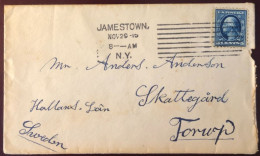 JAMESTOWN,
NOV 29
8--AM
N.Y.
Mr. Anders. Anderson
Skattegård
Hallands. Län
Torup
Sweden